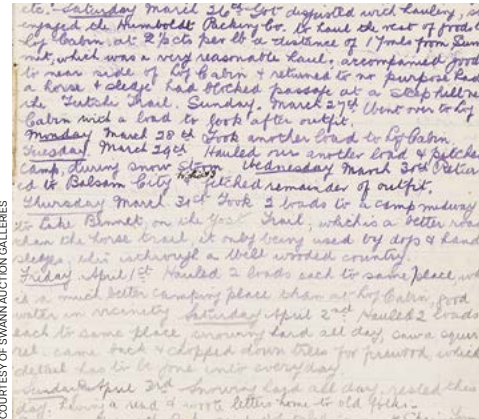 etc. Saturday March 26th Got disgusted with hauling, so
engaged the Humboldt Packing Co. to haul the rest of goods
Log Cabin at 2½ cts per lb a distance of 17 mls from Sum
mit, which was a very reasonable haul, accompanied goods
to near side of Log Cabin & returned to no purpose had
a horse & sledge had blocked passage at a steep hill
the Tutshi Trail. Sunday. March 27th Went over to Log
Cabin with a load to look after outfit.
Monday March 28th Took another load to Log Cabin
Tuesday. March 29th Hauled over another load & pitched
camp, during snow storm Wednesday March 30th Retur
ed to Balsam City & fetched remainder of outfit.
Thursday March 31st Took 2 loads to a camp midway
to Lake Bennet, on the Trail, which is a better road
than the horse trail, it only being used by dogs & hand
sledges, through a well wooded country.
Friday April 1st Hauled 2 loads each to same place,
is a much better camping place than at Log Cabin, good
water in vicinity Saturday April 2nd Hauled 2 loads
each to same place snowing hard all day, saw a squir
rel. came back & chopped down trees for firewood, which
detail has to be gone into everyday
Sunday April 3rd Snowing hard all day, rested this
day. having a read & wrote letters home to old folks.
COURTESY OF SWANN AUCTION GALLERIES